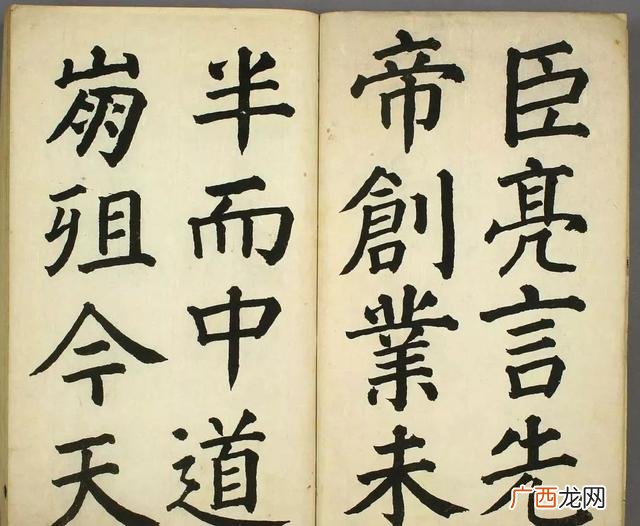 臣亮言先
帝創業未
半而中道
崩殂今天
广西龙网